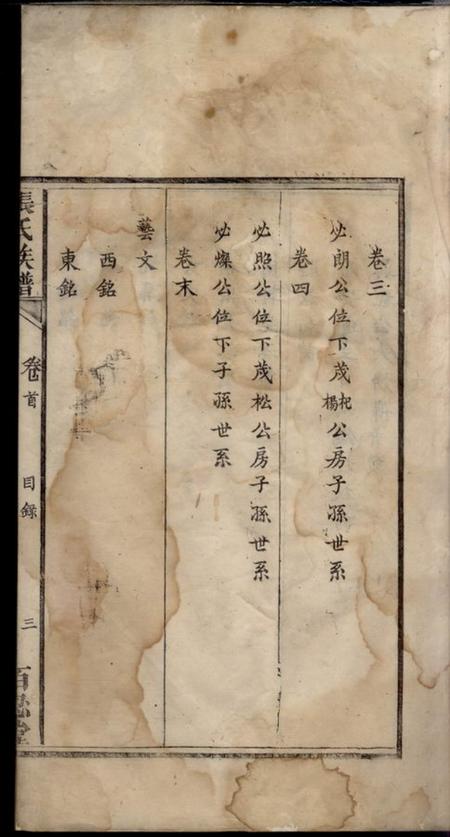 卷三
必朗公位下茂杞楊公房子孫世系
卷四
必照公位下茂松公房子孫世系
必燦公位下子孫世系
卷末
藝文
西銘
東銘
張氏族譜
卷首
目錄
三
百忍堂